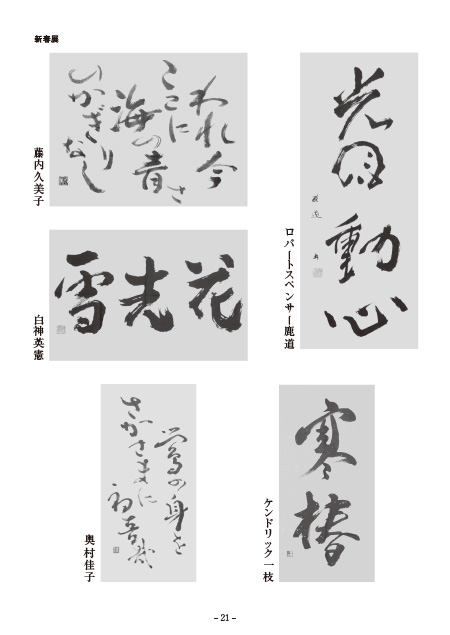 新春展
光
動
心
ロバートスペンサー鹿道
われ今
ここに
海の青さ
のかぎり
なし
藤内久美子
花光雪
白神英憲
寒椿
ケンドリック一枝
鶯の身を
さかさまに
初音哉
奥村佳子
– 21 –